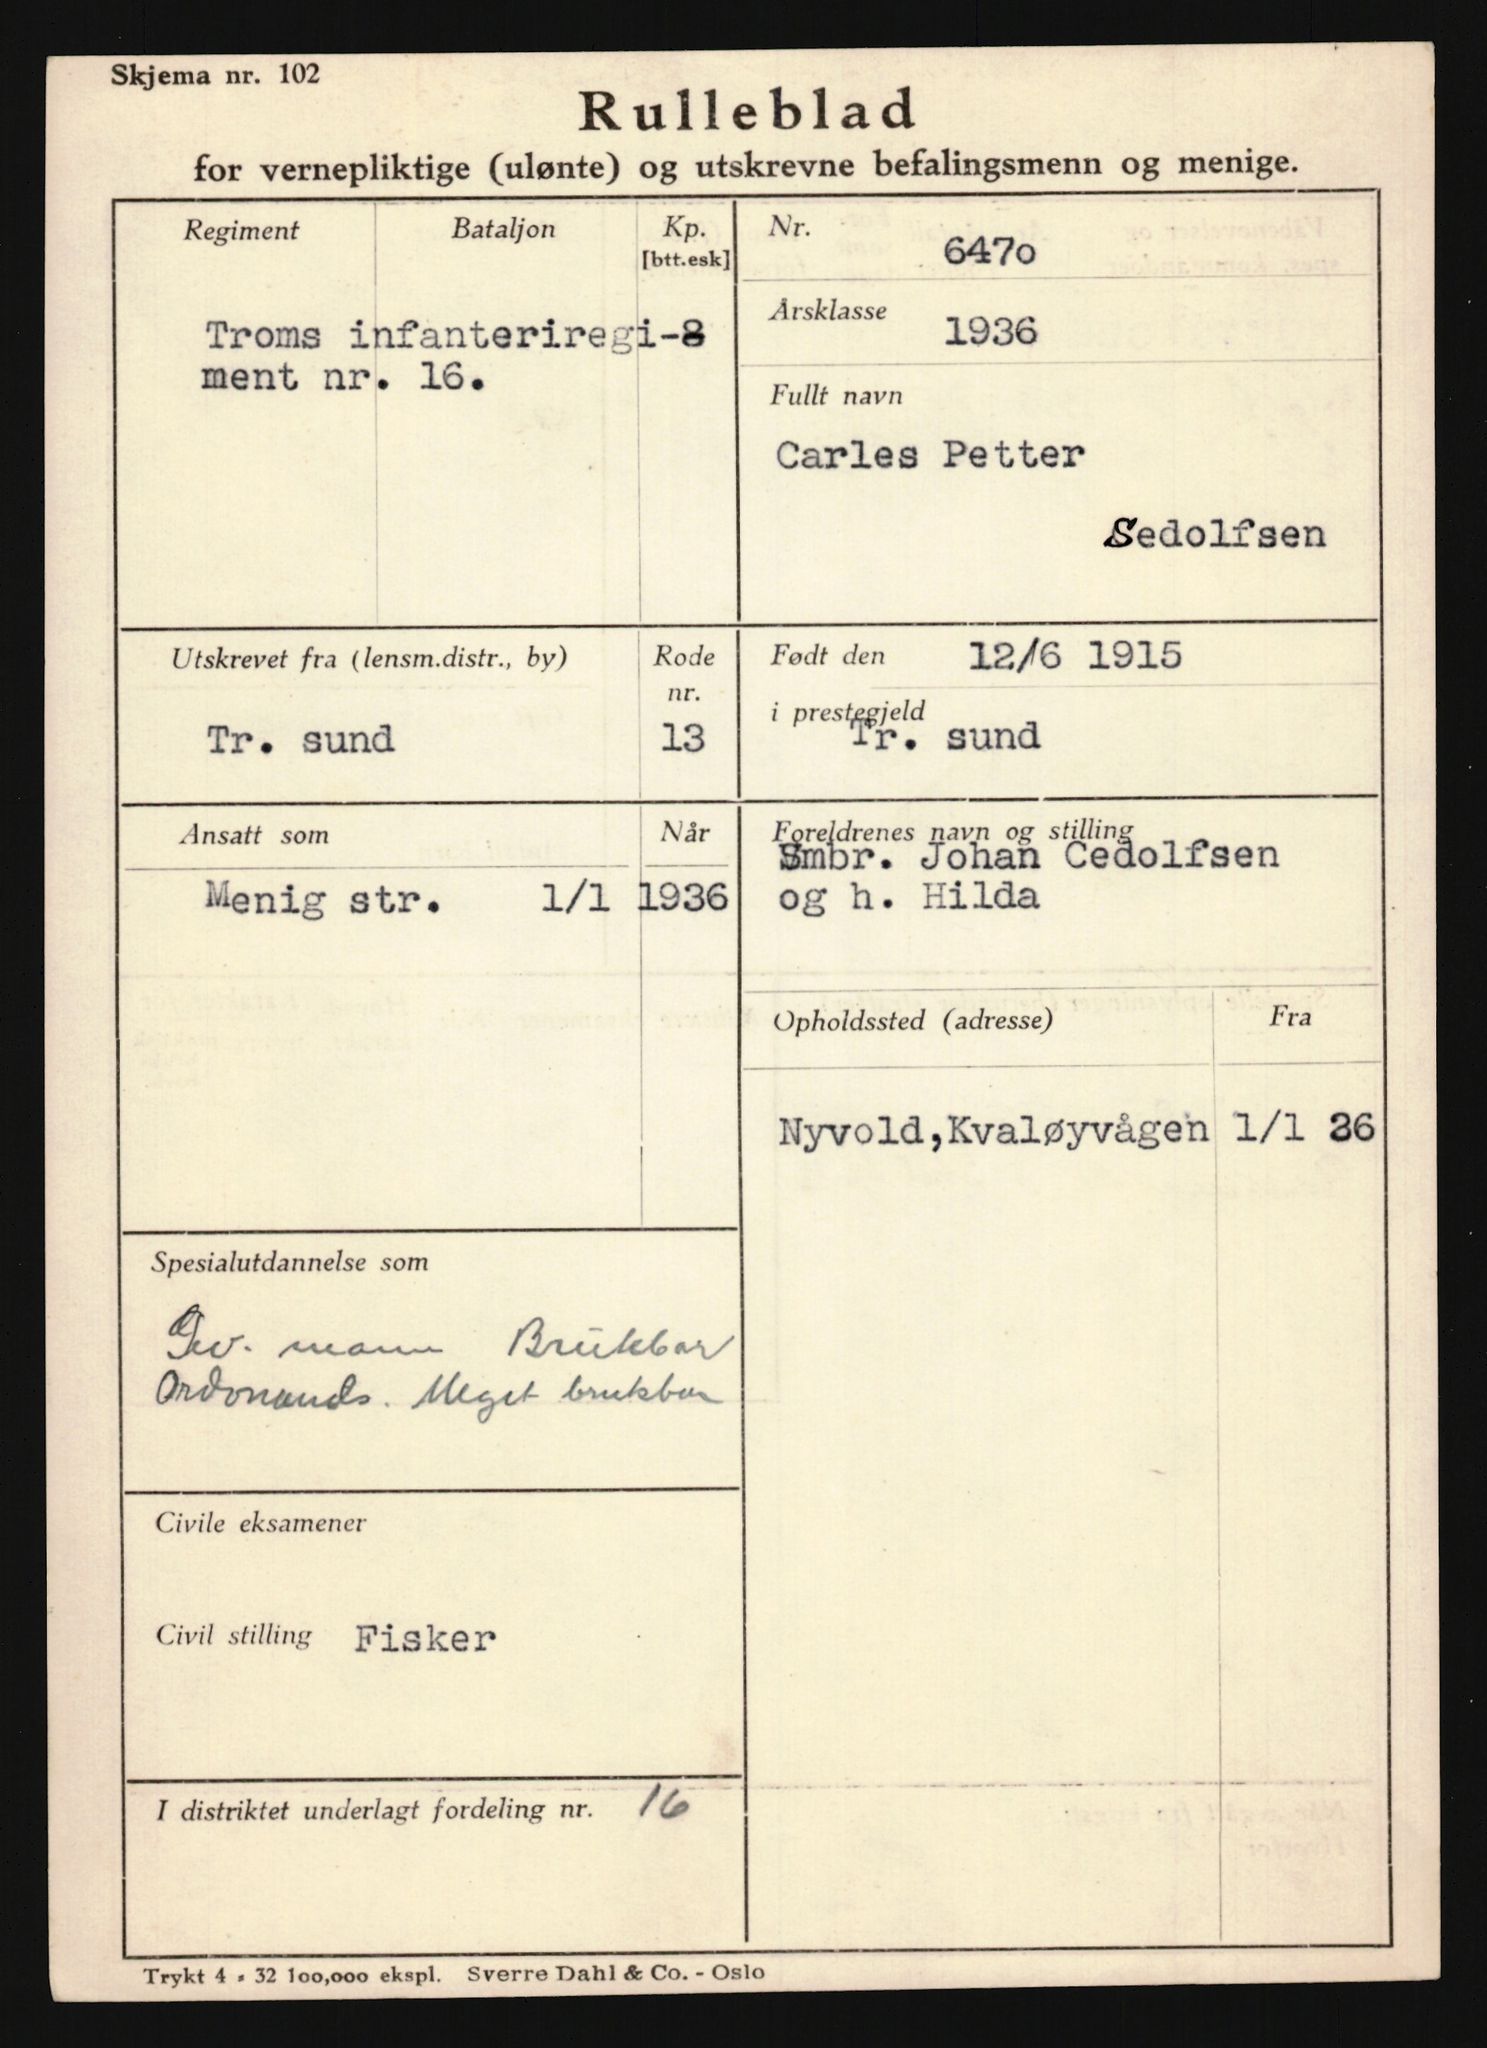 Skjema nr. 102
Rulleblad
for vernepliktige (ulønte) og utskrevne befalingsmenn og menige.
Regiment
Bataljon
Kp.
[btt.esk]
Troms infanteriregi-8
ment nr. 16.
Nr.
6470
Årsklasse
1936
Fullt navn
Carles Petter
Sedolfsen
Utskrevet fra (lensm.distr., by)
Rode
nr.
Tr. sund
13
Født den 12/6 1915
i prestegjeld
Tr. sund
Ansatt som
Når
Menig str. 1/1 1936
Foreldrenes navn og stilling
Smbr. Johan Cedolfsen
og h. Hilda
Opholdssted (adresse)
Fra
Nyvold,Kvaløyvågen 1/1 36
Spesialutdannelse som
Gev. mann Brukbar
Ordonands. Meget brukbar
Civile eksamener
Civil stilling Fisker
I distriktet underlagt fordeling nr. 16
Trykt 4 - 32 100,000 ekspl. Sverre Dahl & Co. - Oslo